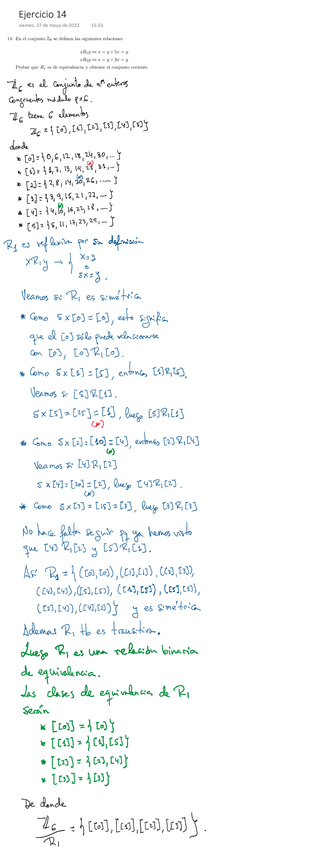 Ejercicio 14
viernes, 27 de mayo de 2022 15:33
14. En el conjunto Z₆ se definen las siguientes relaciones
xR₁y ⇔ x = y ∨ 5x = y
Probar que R₁ es de equivalencia y obtener el conjunto cociente.
ℤ₆ es el conjunto de nº enteros
congruentes módulo p=6.
ℤ₆ tiene 6 elementos
ℤ₆ = {[0],[1],[2],[3],[4],[5]}
donde
* [0]={0,6,12,18,24,30,...}
* [1]={1,7,13,19,25,31,...}
* [2]={2,8,14,20,26,...}
* [3]={3,9,15,21,27,...}
* [4]={4,10,16,22,28,...}
* [5]={5,11,17,23,29,...}
R₁ es reflexiva por su definición
xR₁y → { x=y
o
5x=y.
Veamos si R₁ es simétrica
* Como 5x[0]=[0], esto significa
que el [0] sólo puede relacionarse
con [0], [0]R₁[0].
* Como 5x[1]=[5], entonces [1]R₁[5],
Veamos si [5]R₁[1].
5x[5]=[25]=[1], luego [5]R₁[1]
(*)
* Como 5x[2]=[10]=[4], entonces [2]R₁[4]
Veamos si [4]R₁[2]
5x[4]=[20]=[2], luego [4]R₁[2].
(*)
* Como 5x[3]=[15]=[3], luego [3]R₁[3]
No hace falta seguir pq ya hemos visto
que [4]R₁[2] y [5]R₁[1].
Así R₁={([0],[0]),([1],[1]),([2],[2]),([3],[3]),
([4],[4]),([5],[5]),([1],[5]),([5],[1]),
([2],[4]),([4],[2])} y es simétrica
Además R₁ tb es transitiva.
Luego R₁ es una relación binaria
de equivalencia.
Las clases de equivalencia de R₁
serán
* [[0]]={[0]}
* [[1]]={[1],[5]}
* [[2]]={[2],[4]}
* [[3]]={[3]}
De donde
ℤ₆/R₁ = {[[0]],[[1]],[[2]],[[3]]}.